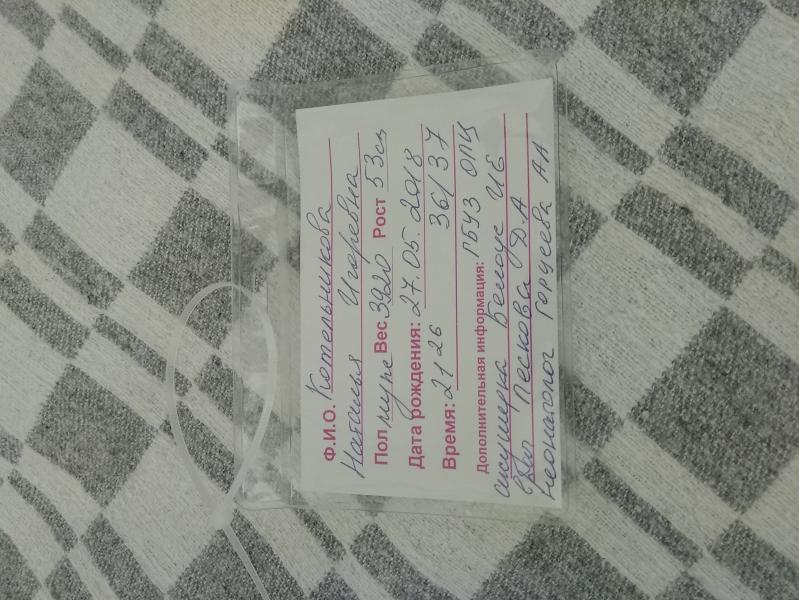 Ф.И.О. Котельникова
Наталья Игоревна
Пол муж Вес 3920 Рост 53см
Дата рождения: 27.05.2018
Время: 21 26 36/37
Дополнительная информация: ГБУЗ ОПЦ
акушерка Белоус И Б
врач Пескова Д.А
неонатолог Гордеева АЛ